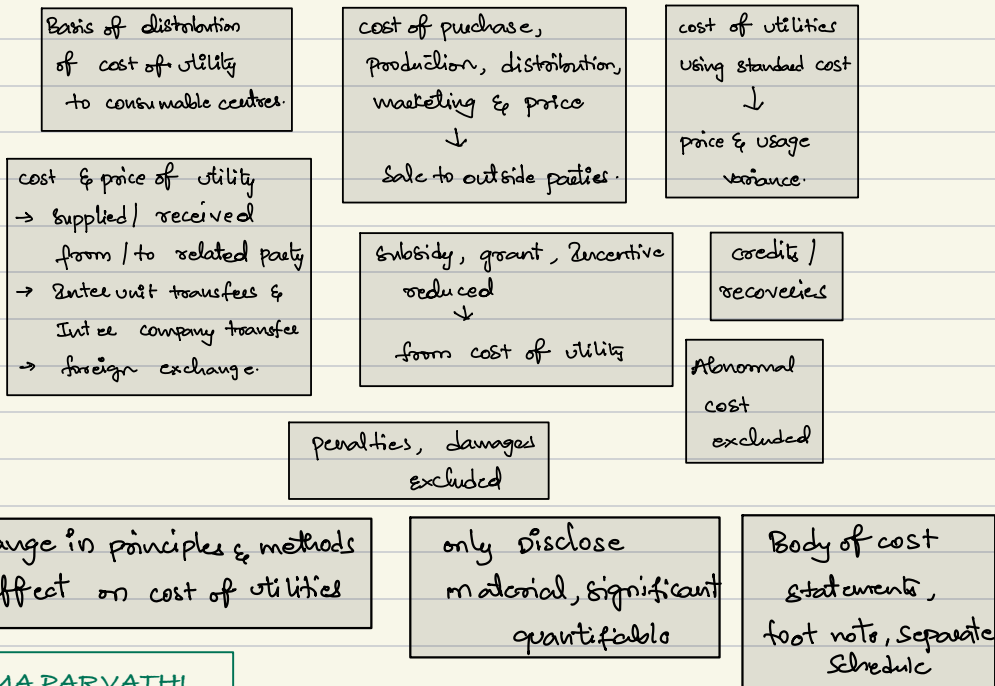 Basis of distribution
of cost of utility
to consumable centres.
cost of purchase,
production, distribution,
marketing & price
↓
Sale to outside parties.
cost of utilities
using standard cost
↓
price & usage
variance.
cost & price of utility
→ Supplied/ received
from / to related party
→ Inter unit transfers &
Inter company transfer
→ foreign exchange.
subsidy, grant, Incentive
reduced
↓
from cost of utility
credits /
recoveries
Abnormal
cost
excluded
penalties, damages
excluded
ange in principles & methods
ffect on cost of utilities
only Disclose
material, significant
quantifiable
Body of cost
statements,
foot note, separate
Schedule
MA PARVATHI